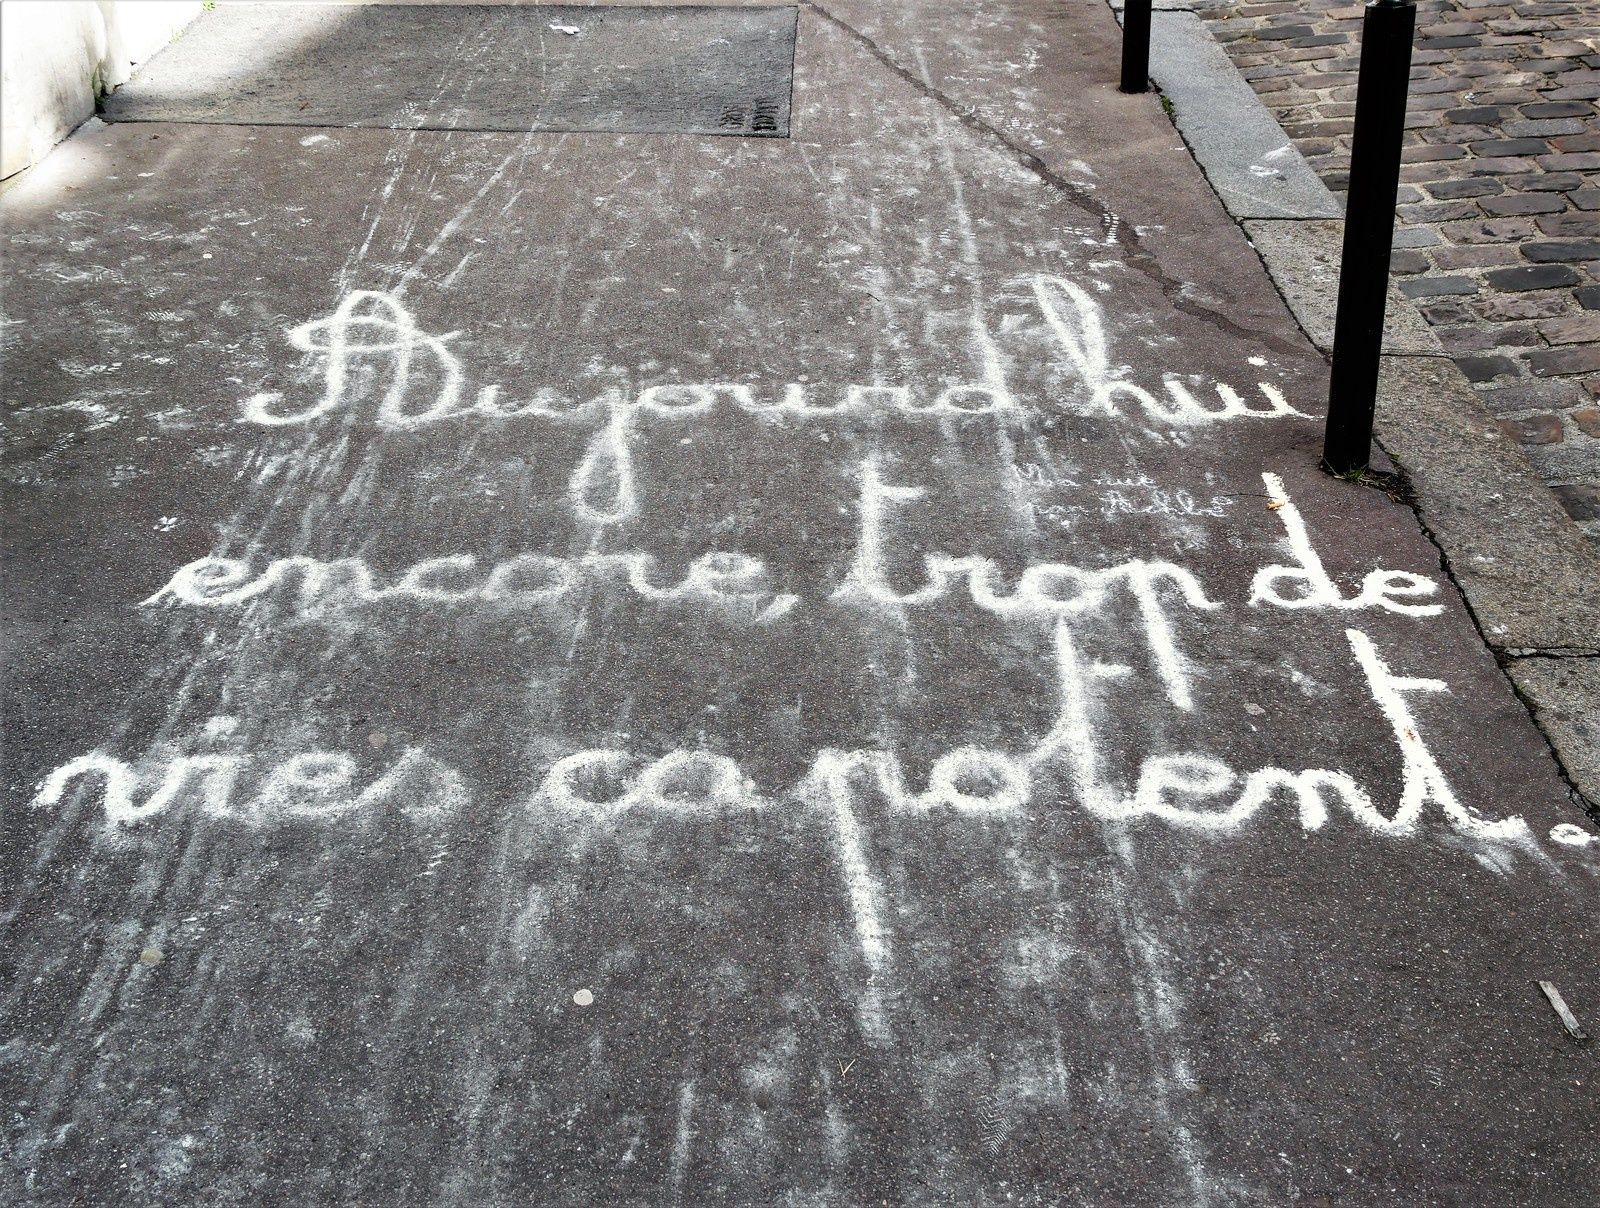 Aujourd'hui
encore, trop de
vies capotent.